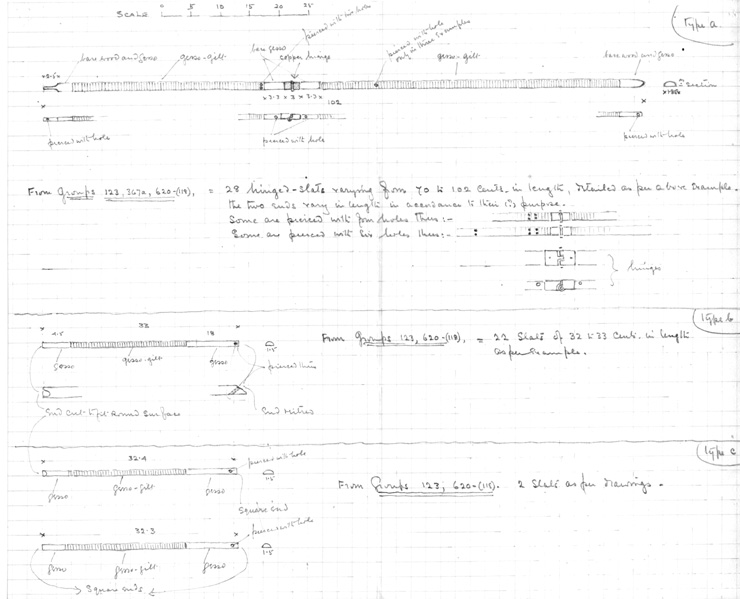 SCALE 0 5 10 15 20 25
type a.
pierced with six holes
pierced with hole
only in three examples
bare wood and gesso
gesso-gilt
bare gesso
copper hinge
gesso-gilt
bare wood and gesso
Section
× 3.3 × 3 × 3.3 ×
102
pierced with hole
pierced with hole
pierced with hole
From Groups 123, 367a, 620-(118), = 28 hinged-slats varying from 70 to 102 cents. in length, detailed as per above example.
the two ends vary in length in accordance to their purpose.
Some are pierced with four holes thus:-
Some are pierced with six holes thus:-
hinges
type b
× 33 ×
4.5 18
1.5
gesso gesso-gilt gesso
pierced thus
From Groups 123, 620-(118), = 22 Slats of 32 to 33 Cents. in length
as per example.
End cut to fit round surface
End Mitred
type c
32.4
pierced with hole
1.5
gesso gesso-gilt gesso
square end
From Groups 123, 620-(118). 2 Slats as per drawings.
32.3
pierced with hole
1.5
gesso gesso-gilt gesso
Square ends